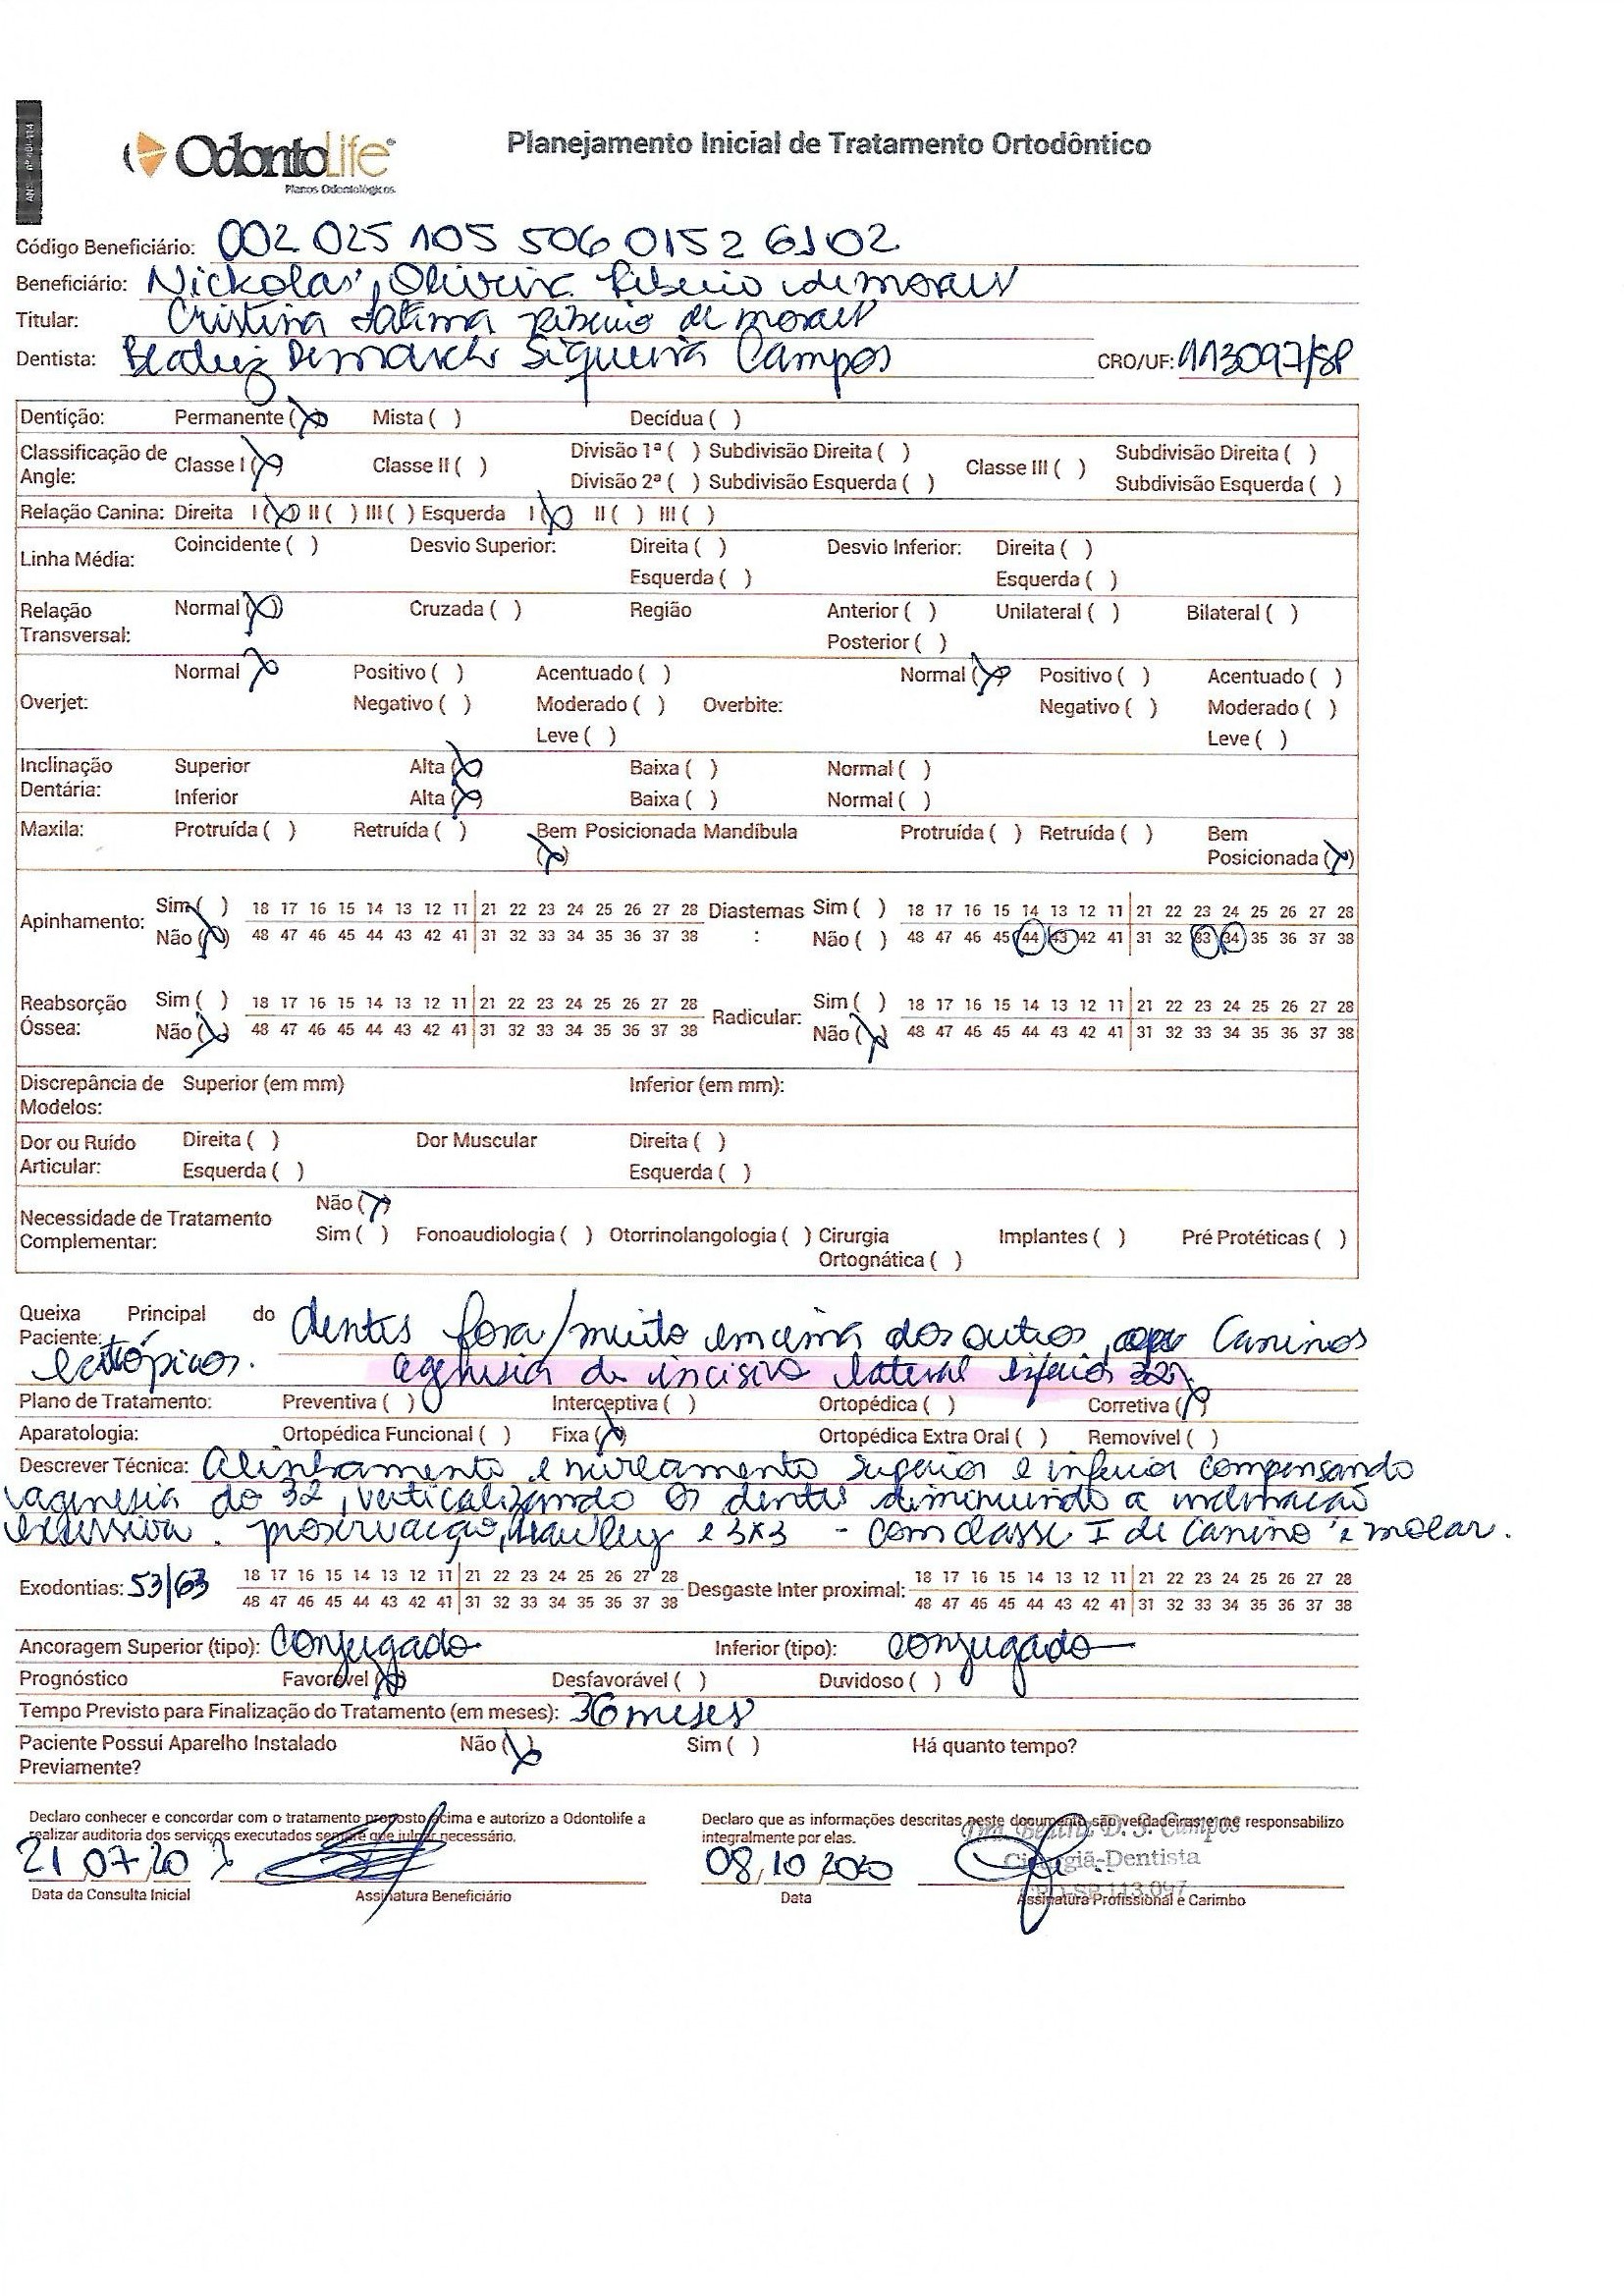 OdontoLife
Planos Odontológicos
Planejamento Inicial de Tratamento Ortodôntico
Código Beneficiário: 002 025 105 506 0152 6102
Beneficiário: Nickolas Oliveira Ribeiro de morais
Titular: Cristina Fatima Ribeiro de moraes
Dentista: Beatriz Demarchi Siqueira Campos CRO/UF: 113097/SP
Dentição: Permanente (X) Mista ( ) Decídua ( )
Classificação de Angle: Classe I (X) Classe II ( ) Divisão 1ª ( ) Subdivisão Direita ( ) Classe III ( ) Subdivisão Direita ( )
Divisão 2ª ( ) Subdivisão Esquerda ( ) Subdivisão Esquerda ( )
Relação Canina: Direita I (X) II ( ) III ( ) Esquerda I (X) II ( ) III ( )
Linha Média: Coincidente ( ) Desvio Superior: Direita ( ) Desvio Inferior: Direita ( )
Esquerda ( ) Esquerda ( )
Relação Transversal: Normal (X) Cruzada ( ) Região Anterior ( ) Unilateral ( ) Bilateral ( )
Posterior ( )
Overjet: Normal X Positivo ( ) Acentuado ( ) Overbite: Normal (X) Positivo ( ) Acentuado ( )
Negativo ( ) Moderado ( ) Negativo ( ) Moderado ( )
Leve ( ) Leve ( )
Inclinação Dentária: Superior Alta (X) Baixa ( ) Normal ( )
Inferior Alta (X) Baixa ( ) Normal ( )
Maxila: Protruída ( ) Retruída ( ) Bem Posicionada (X) Mandíbula Protruída ( ) Retruída ( ) Bem Posicionada (X)
Apinhamento: Sim ( ) 18 17 16 15 14 13 12 11 21 22 23 24 25 26 27 28 Diastemas: Sim ( ) 18 17 16 15 14 13 12 11 21 22 23 24 25 26 27 28
Não (X) 48 47 46 45 44 43 42 41 31 32 33 34 35 36 37 38 Não ( ) 48 47 46 45 44 43 42 41 31 32 33 34 35 36 37 38
Reabsorção Óssea: Sim ( ) 18 17 16 15 14 13 12 11 21 22 23 24 25 26 27 28 Radicular: Sim ( ) 18 17 16 15 14 13 12 11 21 22 23 24 25 26 27 28
Não (X) 48 47 46 45 44 43 42 41 31 32 33 34 35 36 37 38 Não (X) 48 47 46 45 44 43 42 41 31 32 33 34 35 36 37 38
Discrepância de Modelos: Superior (em mm) Inferior (em mm):
Dor ou Ruído Articular: Direita ( ) Dor Muscular Direita ( )
Esquerda ( ) Esquerda ( )
Necessidade de Tratamento Complementar: Não (X)
Sim ( ) Fonoaudiologia ( ) Otorrinolangologia ( ) Cirurgia Ortognática ( ) Implantes ( ) Pré Protéticas ( )
Queixa Principal do Paciente: dentes fora/muito emcima dos outros, Caninos
ectópicos. agenesia de incisivo lateral inferior 32
Plano de Tratamento: Preventiva ( ) Interceptiva ( ) Ortopédica ( ) Corretiva (X)
Aparatologia: Ortopédica Funcional ( ) Fixa (X) Ortopédica Extra Oral ( ) Removível ( )
Descrever Técnica: Alinhamento e nivelamento superior e inferior compensando
agenesia do 32, verticalizando os dentes diminuindo a inclinação
excessiva. proservação, Hawley e 3x3 - com classe I de canino e molar.
Exodontias: 53/63 18 17 16 15 14 13 12 11 21 22 23 24 25 26 27 28 Desgaste Inter proximal: 18 17 16 15 14 13 12 11 21 22 23 24 25 26 27 28
48 47 46 45 44 43 42 41 31 32 33 34 35 36 37 38 48 47 46 45 44 43 42 41 31 32 33 34 35 36 37 38
Ancoragem Superior (tipo): conjugado Inferior (tipo): conjugado
Prognóstico Favorável (X) Desfavorável ( ) Duvidoso ( )
Tempo Previsto para Finalização do Tratamento (em meses): 36 meses
Paciente Possui Aparelho Instalado Previamente? Não (X) Sim ( ) Há quanto tempo?
Declaro conhecer e concordar com o tratamento proposto acima e autorizo a Odontolife a
realizar auditoria dos serviços executados sempre que julgar necessário.
Declaro que as informações descritas neste documento são verdadeiras e me responsabilizo
integralmente por elas.
Dra. Beatriz D. S. Campos
Cirurgiã-Dentista
CRO-SP 113.097
21 07 20
08/10 2020
Data da Consulta Inicial Assinatura Beneficiário Data Assinatura Profissional e Carimbo